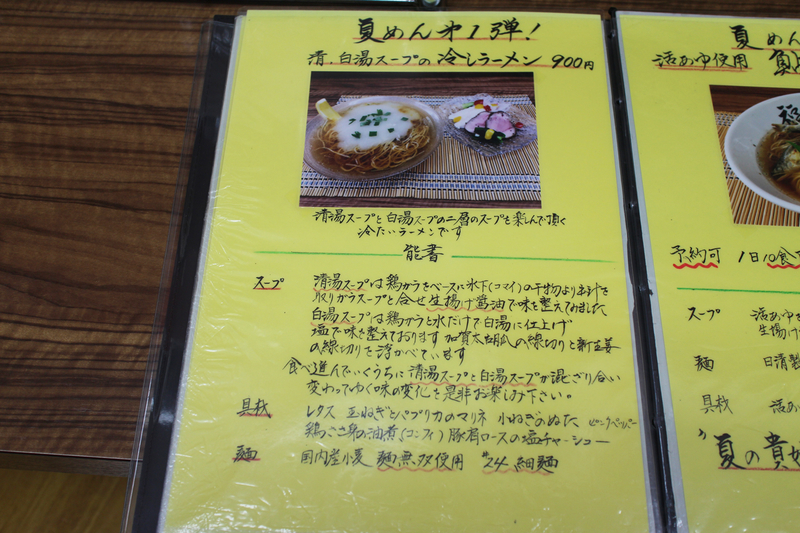 夏めん才1弾!
清.白湯スープの冷しラーメン 900円
清湯スープと白湯スープの二層のスープを楽しんで頂く
冷たいラーメンです
能書
スープ 清湯スープは鶏がらをベースに氷下(コマイ)の干物より出汁を
取りがらスープと合せ生揚げ醤油で味を整えてみました
白湯スープは鶏がらと水だけで白湯に仕上げ
塩で味を整えております 加賀太胡瓜の線切りと新生姜
の線切りを浮かべています
食べ進んでいくうちに清湯スープと白湯スープが混ざり合い
変わってゆく味の変化を是非お楽しみ下さい。
具材 レタス 玉ねぎとパプリカのマリネ 小ねぎのぬた ピンクペッパー
鶏ささ身の油煮(コンフィ) 豚肩ロースの塩チャーシュー
麺 国内産小麦 麺無双使用 #24 細麺
夏めん
活あゆ使用
予約可 1日10食
スープ 活あゆを
生揚げ
麺 日清製
具材 活あ
夏の貴